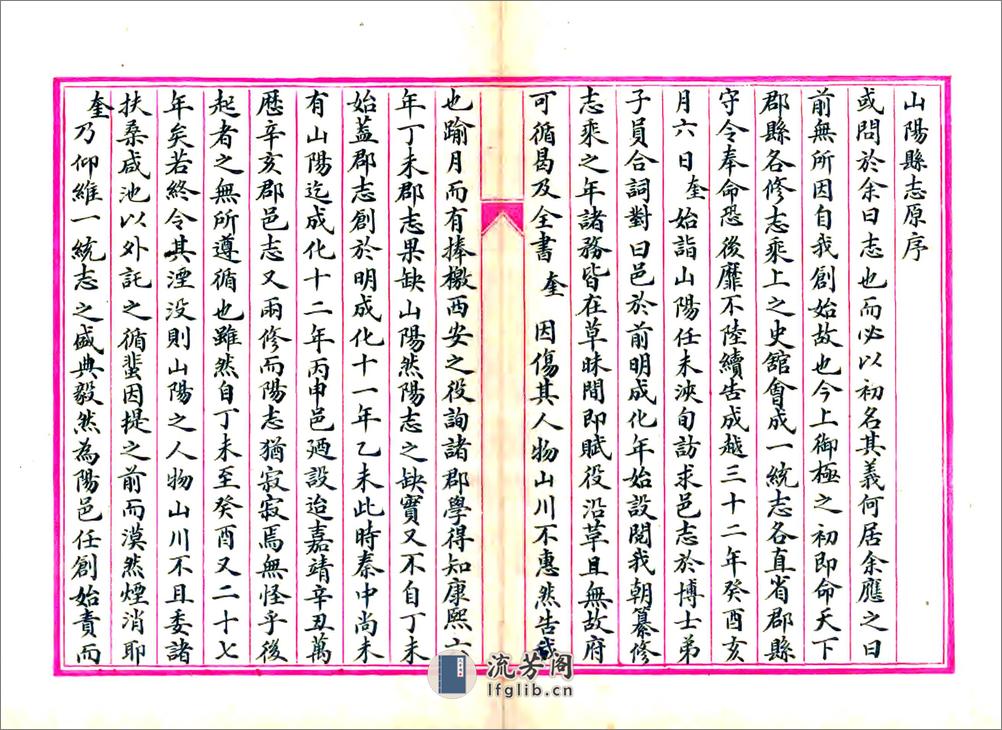 山陽縣志原序
或問於余曰志也而必以初名其義何居余應之曰
前無所因自我創始故也今上御極之初即命天下
郡縣各修志乘上之史舘會成一統志各直省郡縣
守令奉命恐後靡不陸續告成越三十二年癸酉亥
月六日奎始詣山陽任未浹旬訪求邑志於博士弟
子員合詞對曰邑於前明成化年始設閱我朝纂修
志乘之年諸務皆在草昧間即賦役沿革且無故府
可循曷及全書奎 因傷其人物山川不惠然告
也踰月而有捧檄西安之役詢諸郡學得知康熙六
年丁未郡志果缺山陽然陽志之缺實又不自丁未
始蓋郡志創於明成化十一年乙未此時秦中尚未
有山陽迄成化十二年丙申邑廼設迨嘉靖辛丑萬
歷辛亥郡邑志又兩修而陽志猶寂寂焉無怪乎後
起者之無所遵循也雖然自丁未至癸酉又二十七
年矣若終令其湮没則山陽之人物山川不且委諸
扶桑咸池以外託之循蜚因提之前而漠然煙消耶
奎乃仰維一統志之盛典毅然為陽邑任創始責而
流芳阁
lfglib.cn